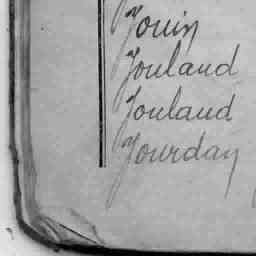 Jouin
Jouland
Jouland
Jourdan